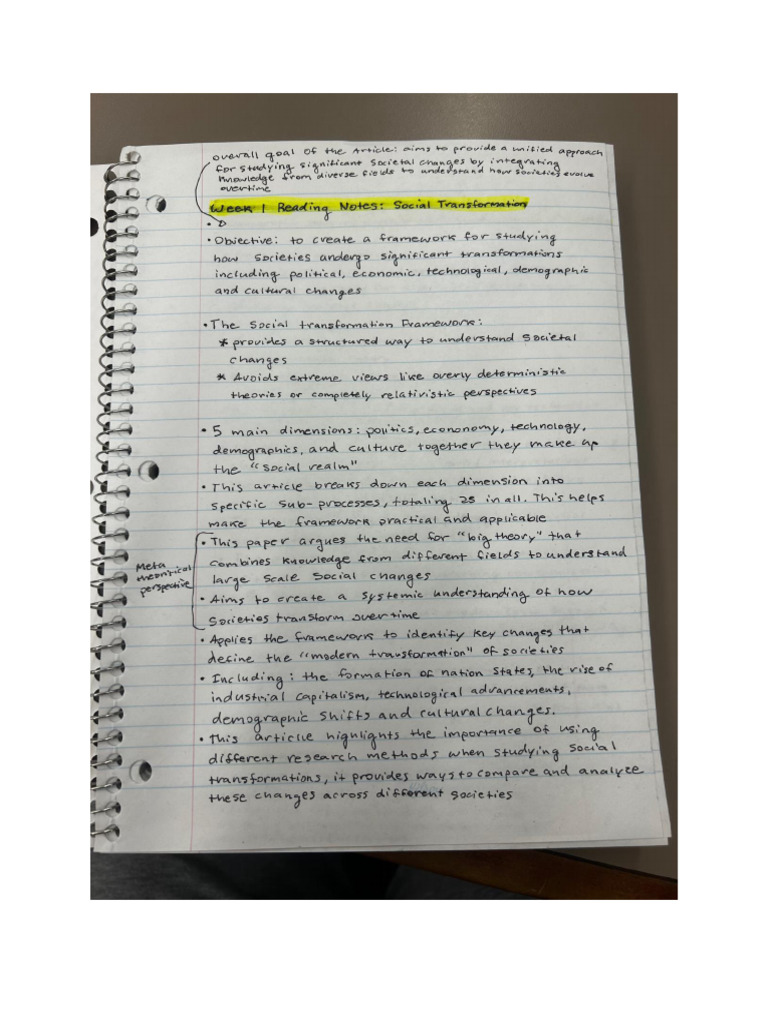 overall goal of the Article: aims to provide a unified approach
for studying significant societal changes by integrating
knowledge from diverse fields to understand how societies evolve
overtime
Week 1 Reading Notes: Social Transformation
•
• Objective: to create a framework for studying
how societies undergo significant transformations
including political, economic, technological, demographic
and cultural changes
• The Social transformation Framework:
* provides a structured way to understand societal
changes
* Avoids extreme views like overly deterministic
theories or completely relativistic perspectives
• 5 main dimensions: politics, econonomy, technology,
demographics, and culture together they make up
the "social realm"
• This article breaks down each dimension into
specific sub-processes, totaling 25 in all. This helps
make the framework practical and applicable
• This paper argues the need for "big theory" that
combines knowledge from different fields to understand
large scale social changes
Meta
theoritical
perspective
• Aims to create a systemic understanding of how
societies transform overtime
• Applies the framework to identify key changes that
define the "modern transformation" of societies
• Including: the formation of nation states, the rise of
industrial capitalism, technological advancements,
demographic shifts and cultural changes.
• This article highlights the importance of using
different research methods when studying social
transformations, it provides ways to compare and analyze
these changes across different societies